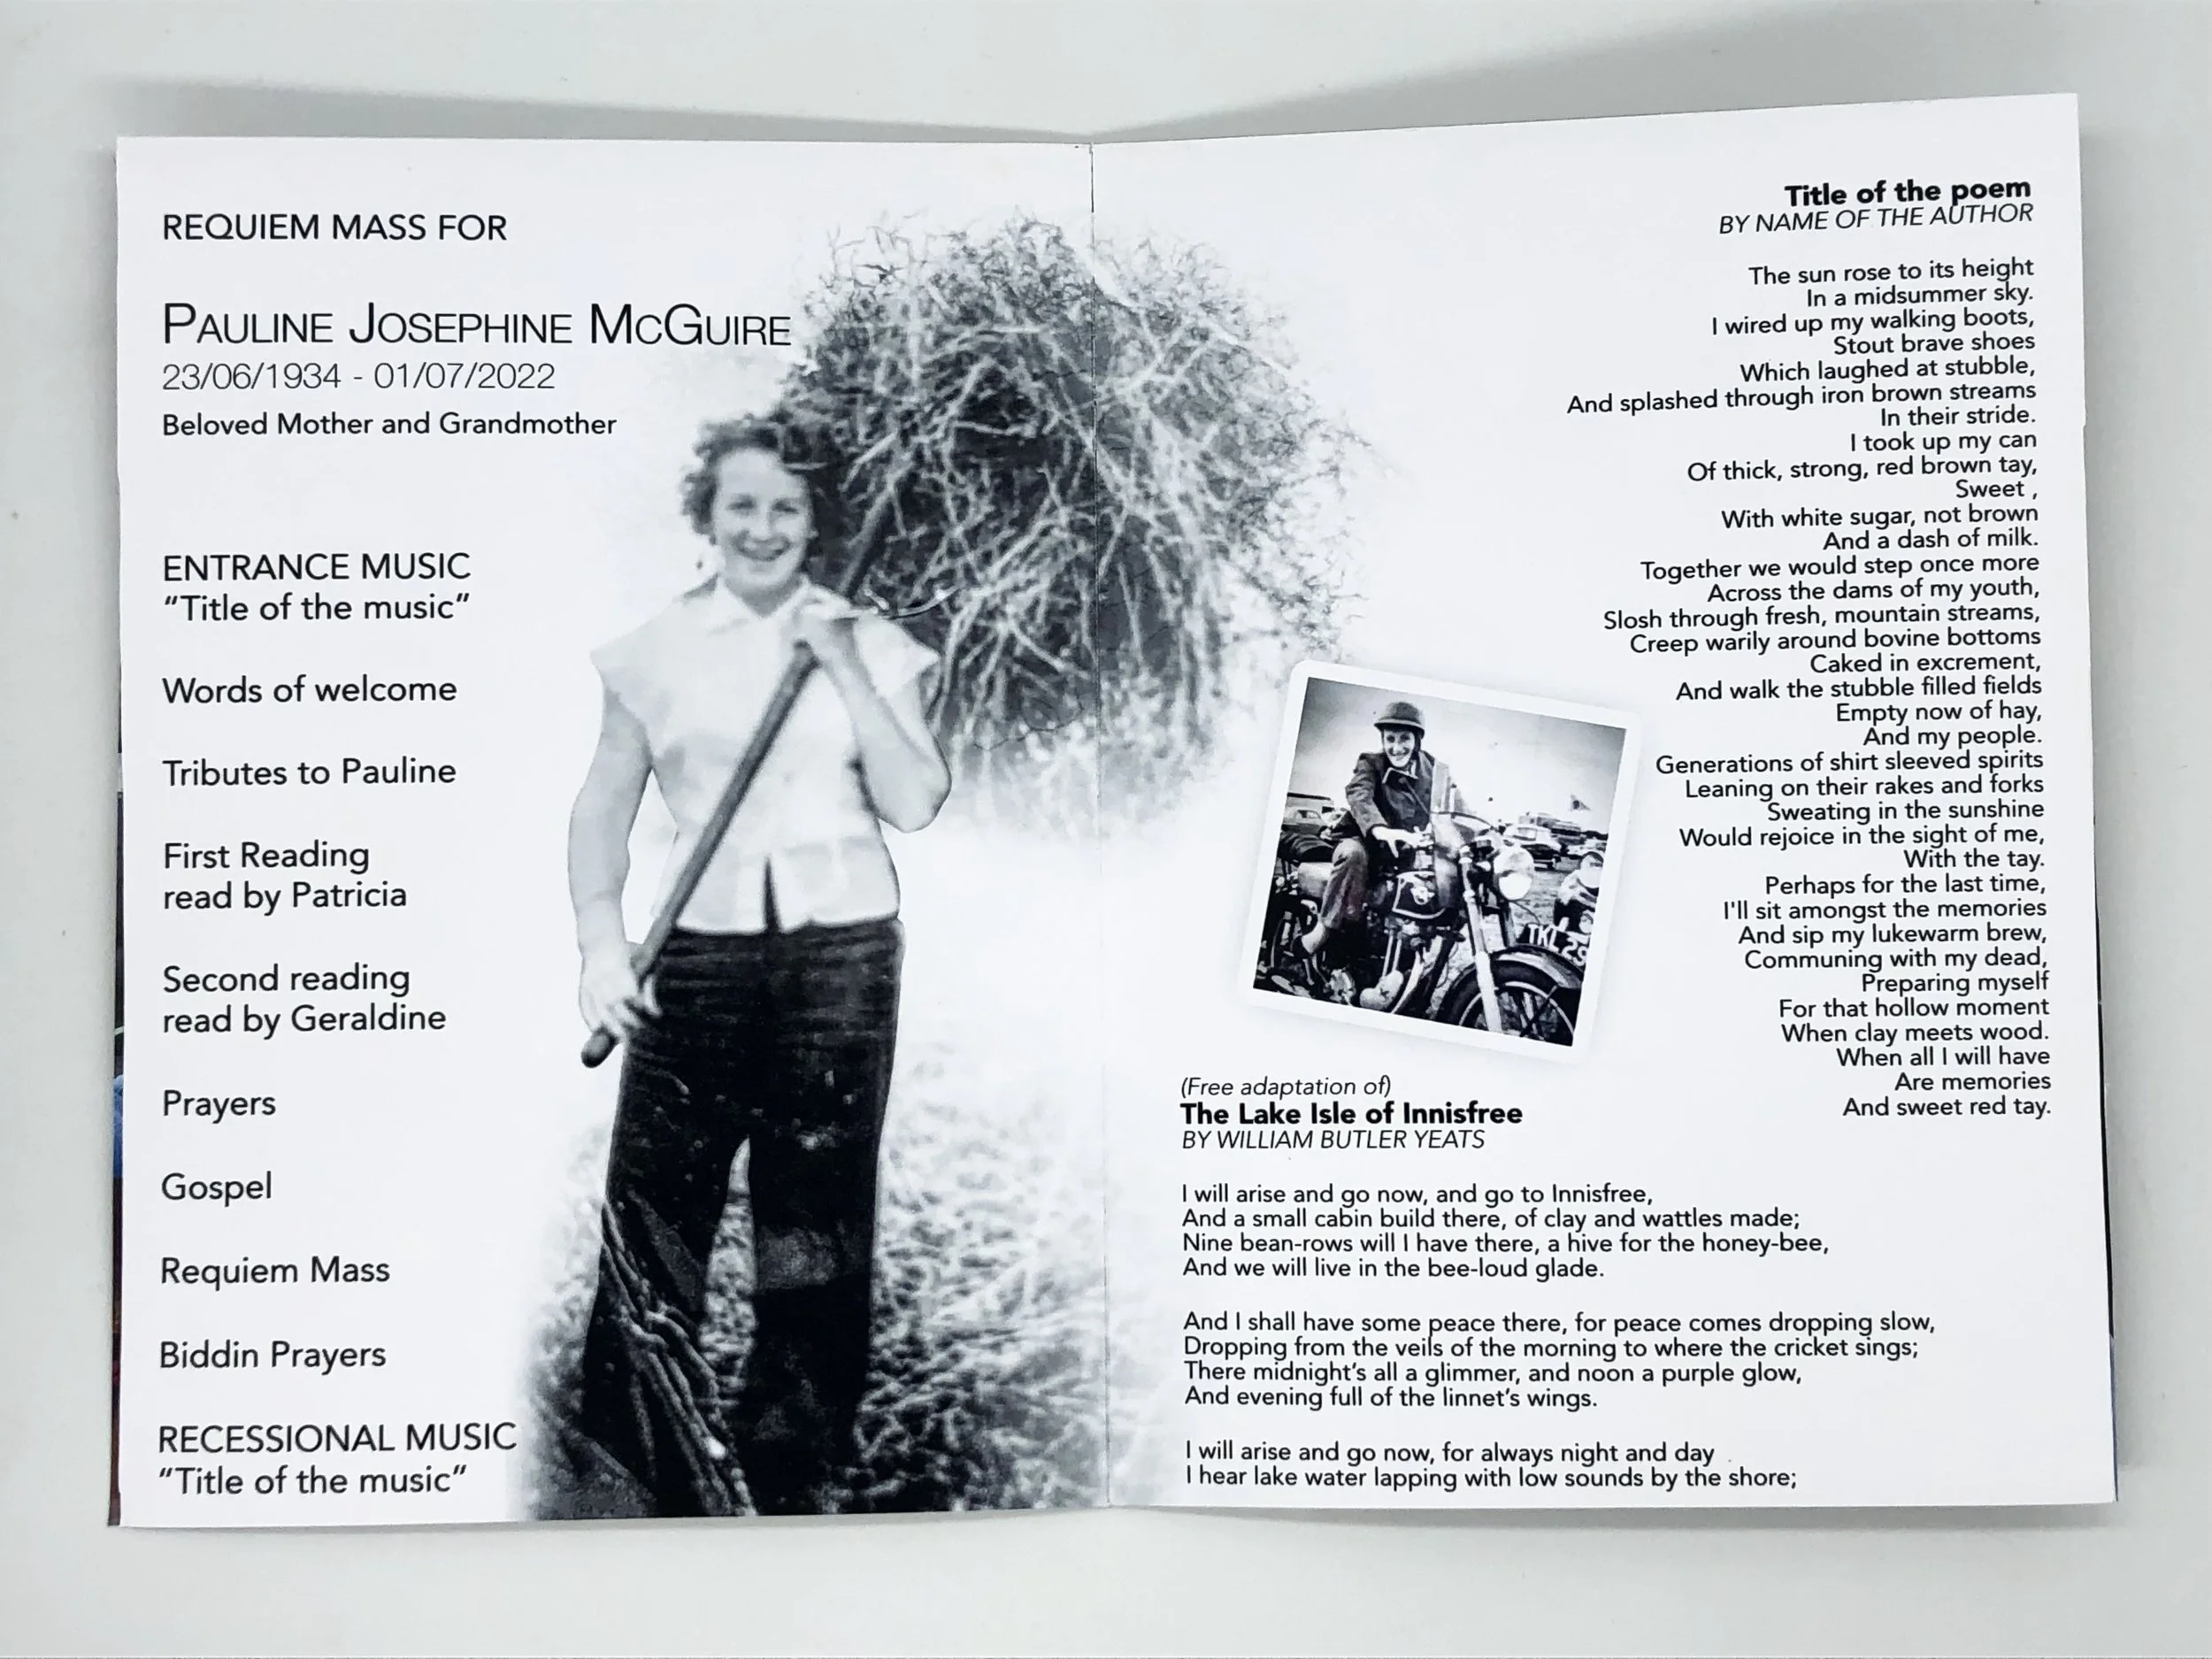 REQUIEM MASS FOR
PAULINE JOSEPHINE MCGUIRE
23/06/1934 - 01/07/2022
Beloved Mother and Grandmother
ENTRANCE MUSIC
“Title of the music”
Words of welcome
Tributes to Pauline
First Reading
read by Patricia
Second reading
read by Geraldine
Prayers
Gospel
Requiem Mass
Biddin Prayers
RECESSIONAL MUSIC
“Title of the music”
Title of the poem
BY NAME OF THE AUTHOR
The sun rose to its height
In a midsummer sky.
I wired up my walking boots,
Stout brave shoes
Which laughed at stubble,
And splashed through iron brown streams
In their stride.
I took up my can
Of thick, strong, red brown tay,
Sweet ,
With white sugar, not brown
And a dash of milk.
Together we would step once more
Across the dams of my youth,
Slosh through fresh, mountain streams,
Creep warily around bovine bottoms
Caked in excrement,
And walk the stubble filled fields
Empty now of hay,
And my people.
Generations of shirt sleeved spirits
Leaning on their rakes and forks
Sweating in the sunshine
Would rejoice in the sight of me,
With the tay.
Perhaps for the last time,
I'll sit amongst the memories
And sip my lukewarm brew,
Communing with my dead,
Preparing myself
For that hollow moment
When clay meets wood.
When all I will have
Are memories
And sweet red tay.
TKL
(Free adaptation of)
The Lake Isle of Innisfree
BY WILLIAM BUTLER YEATS
I will arise and go now, and go to Innisfree,
And a small cabin build there, of clay and wattles made;
Nine bean-rows will I have there, a hive for the honey-bee,
And we will live in the bee-loud glade.
And I shall have some peace there, for peace comes dropping slow,
Dropping from the veils of the morning to where the cricket sings;
There midnight’s all a glimmer, and noon a purple glow,
And evening full of the linnet’s wings.
I will arise and go now, for always night and day
I hear lake water lapping with low sounds by the shore;